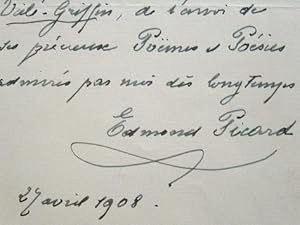 Vielé-Griffin, de l'envoi de
ses précieux Poëmes et Poésies
admirés par moi dès longtemps
Edmond Picard
27 avril 1908.